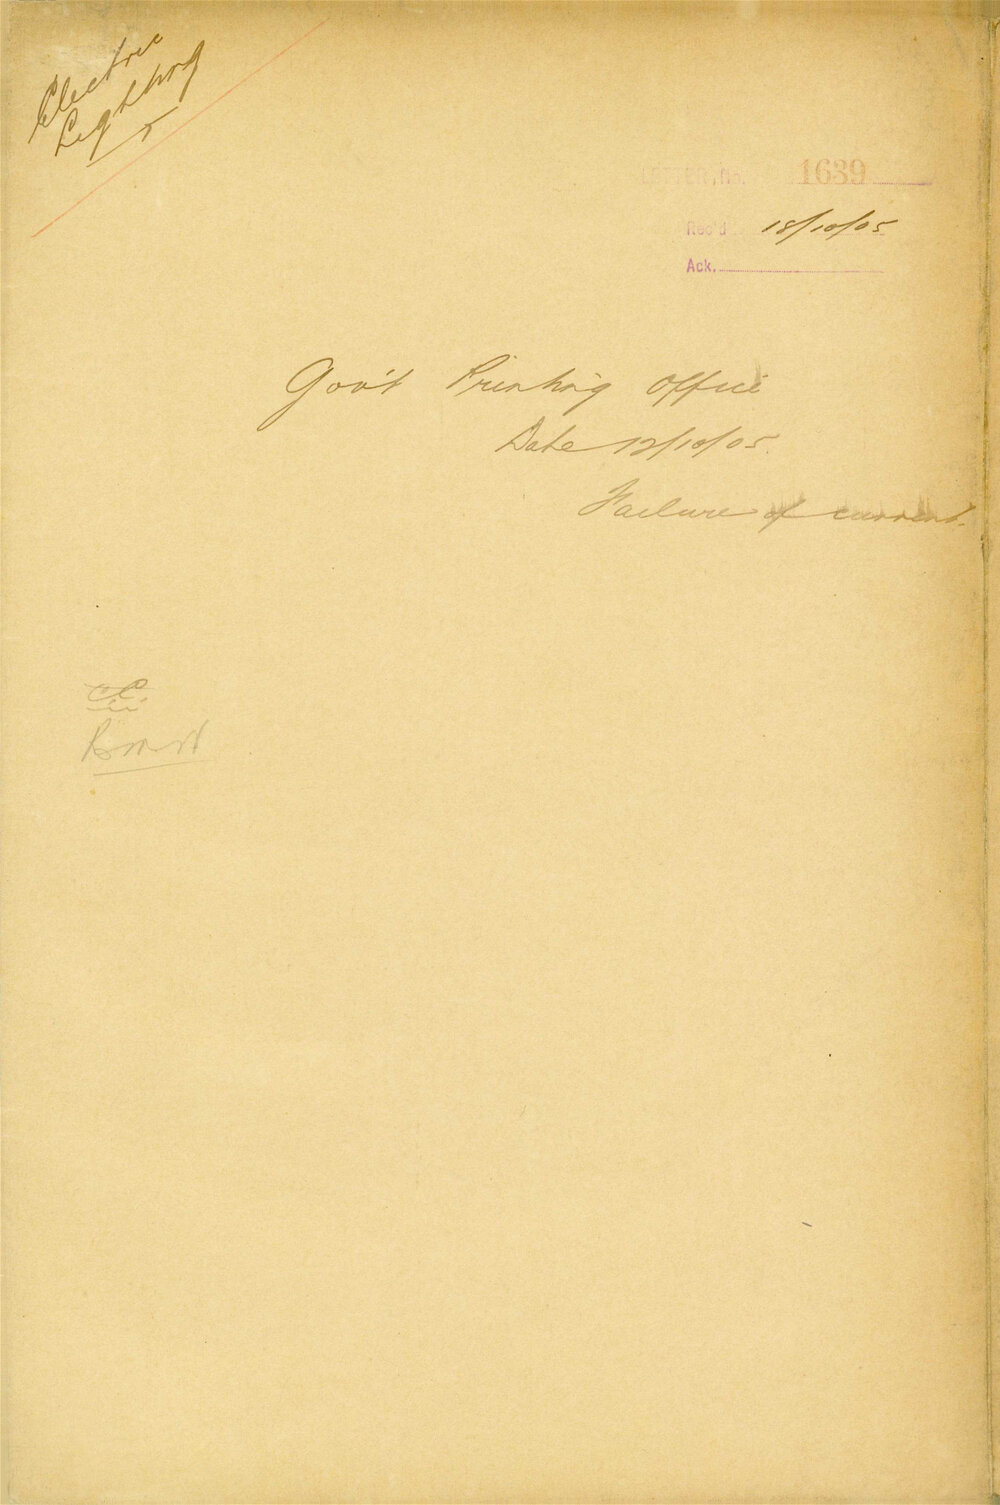 Electric
Lighting
5
LETTER, No. 1639
Rec'd 18/10/05
Ack.
Gov't Printing Office
Date 12/10/05.
Failure of current.